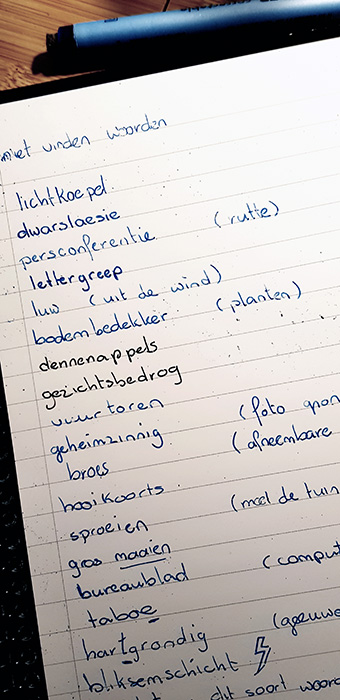 niet vinden woorden
lichtkoepel
dwarslaesie
persconferentie (rutte)
lettergreep
luw (uit de wind)
bodembedekker (planten)
dennenappels
gezichtsbedrog
vuurtoren
geheimzinnig (foto
broes (afneembare
hooikoorts
sproeien (met de tuin
gras maaien
bureaublad (comput
taboe
hartgrondig (geeuwe
bliksemschicht
dit soort woord